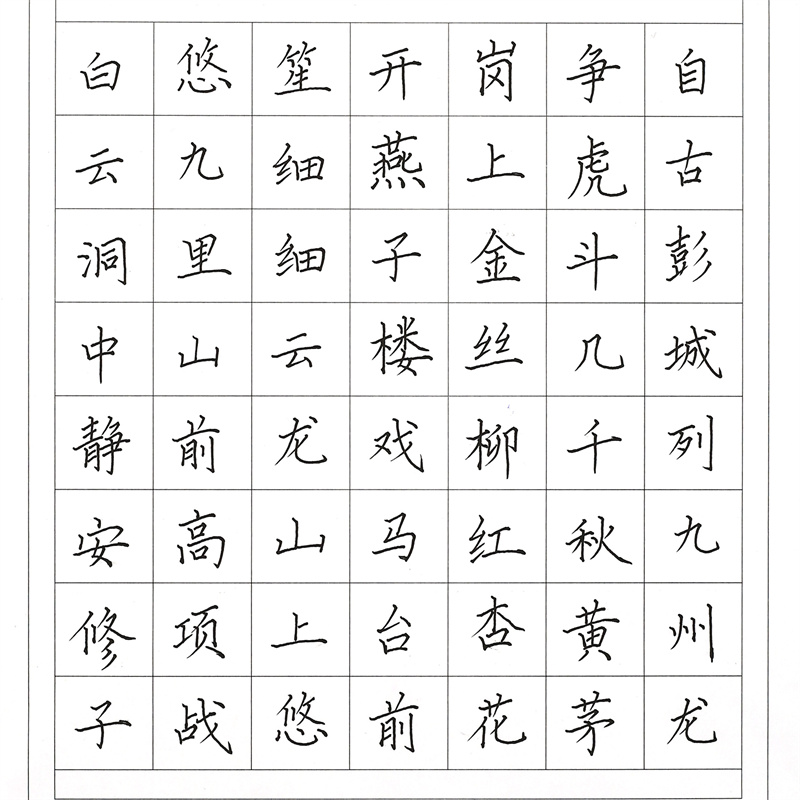 自古彭城列九州龙
争虎斗几千秋黄茅
岗上金丝柳红杏花
开燕子楼戏马台前
笙细细云龙山上悠
悠九里山前高项战
白云洞中静安修子